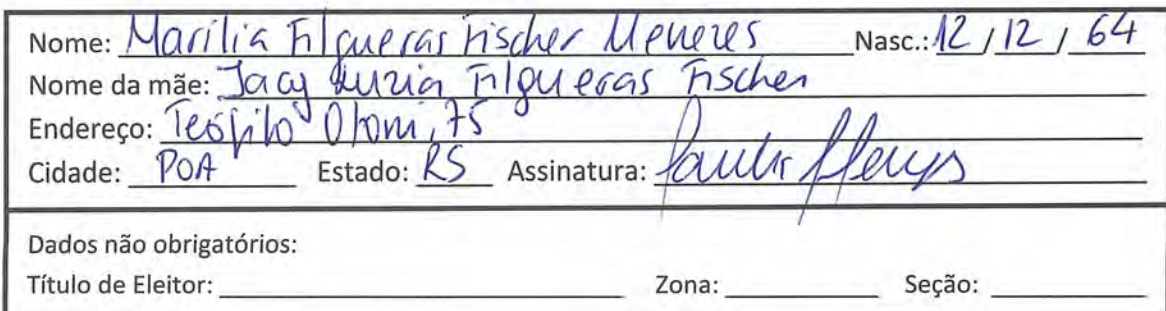 Nome: Marília Filgueras Fischer Menezes Nasc.: 12 / 12 / 64
Nome da mãe: Jacy Luzia Filgueras Fischer
Endereço: Teófilo Otoni, 75
Cidade: POA Estado: RS Assinatura:
Dados não obrigatórios:
Título de Eleitor: Zona: Seção: